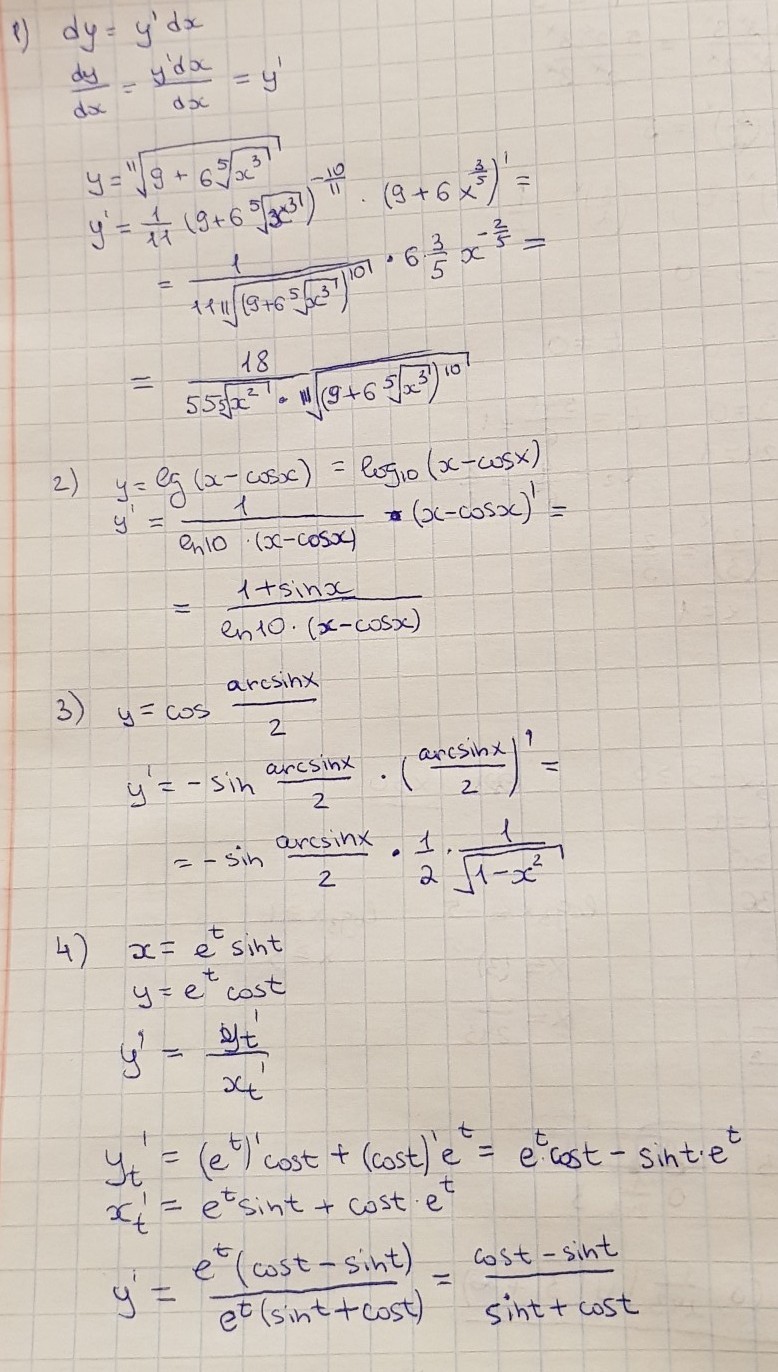 1) dy = y' dx
dy/dx = y'dx/dx = y'
y = ¹¹√(9 + 6 ⁵√(x³))
y' = 1/11 (9+6 ⁵√(x³))^(-10/11) · (9 + 6 x^(3/5))' =
= 1/(11 ¹¹√((9+6 ⁵√(x³))^10)) · 6·3/5 x^(-2/5) =
= 18/(55 ⁵√(x²) · ¹¹√((9+6 ⁵√(x³))^10))
2) y = lg (x-cosx) = log₁₀ (x-cosx)
y' = 1/(ln10 · (x-cosx)) · (x-cosx)' =
= (1+sinx)/(ln10 · (x-cosx))
3) y = cos arcsinx/2
y' = - sin arcsinx/2 · (arcsinx/2)' =
= - sin arcsinx/2 · 1/2 · 1/√(1-x²)
4) x = e^t sint
y = e^t cost
y' = y_t'/x_t'
y_t' = (e^t)' cost + (cost)' e^t = e^t·cost - sint·e^t
x_t' = e^t sint + cost · e^t
y' = e^t (cost - sint)/e^t (sint + cost) = (cost - sint)/(sint + cost)